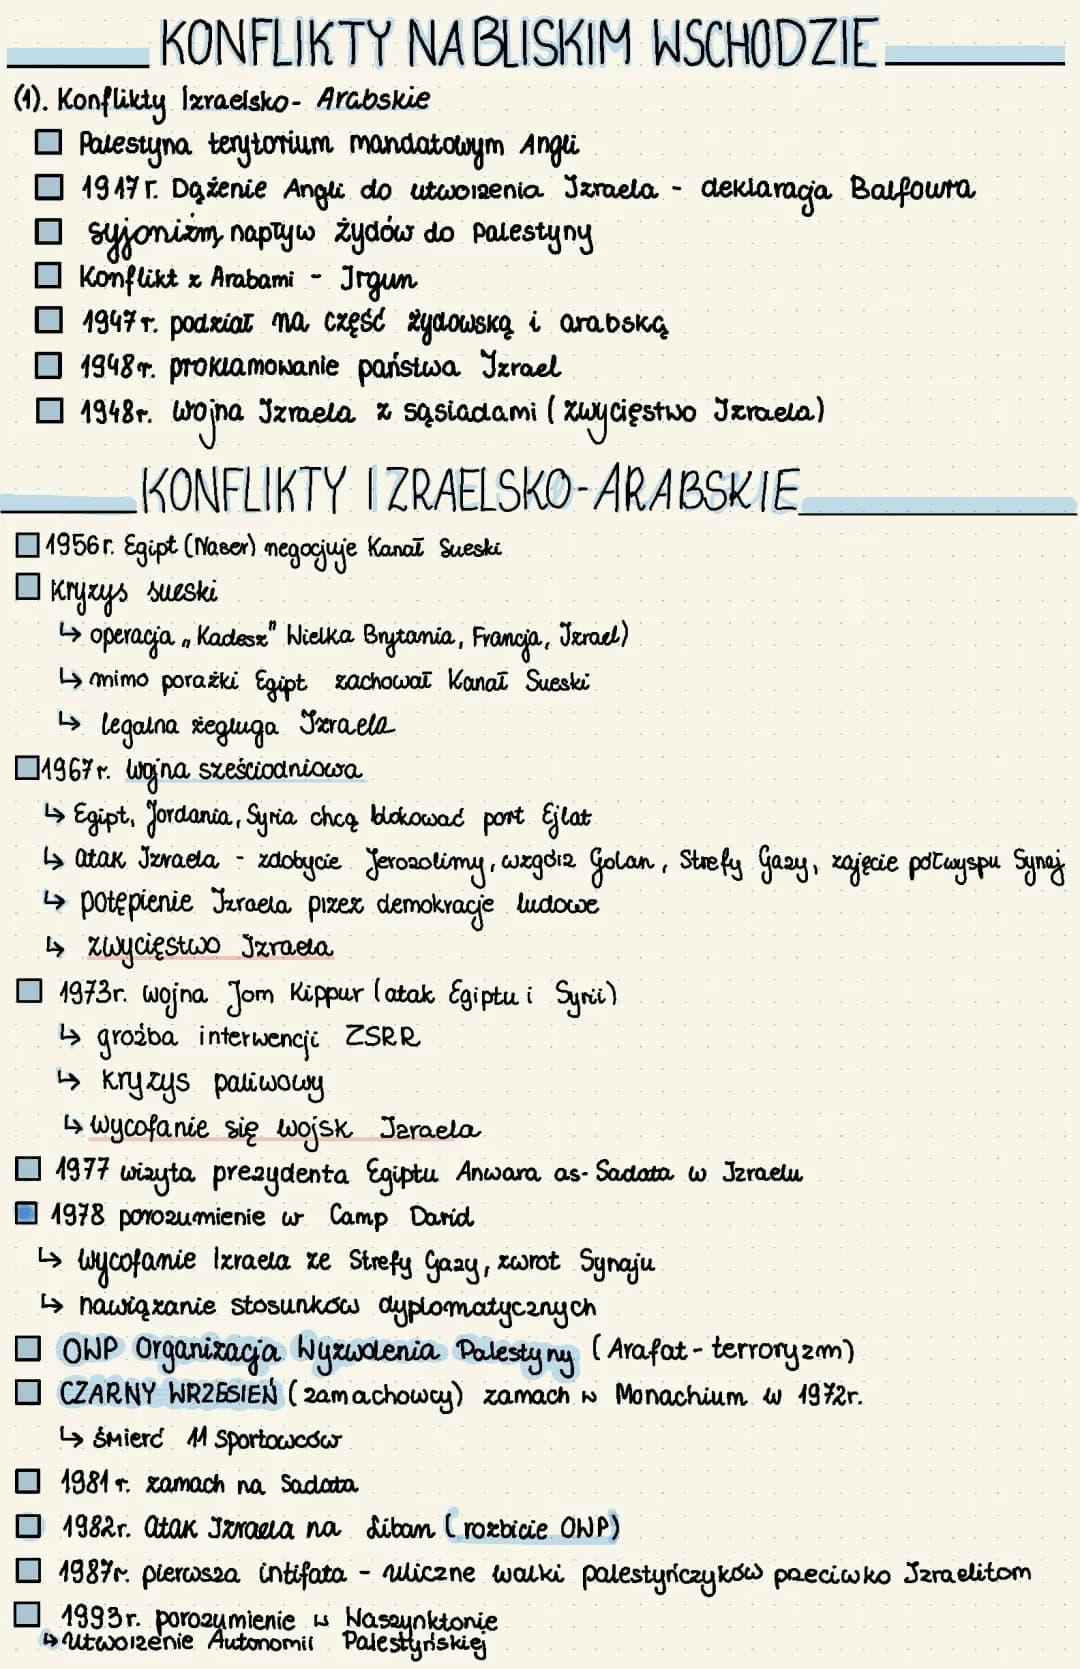 KONFLIKTY NA BLISKIM WSCHODZIE
(1). Konflikty Izraelsko- Arabskie
Palestyna terytorium mandatowym Angli
1917 r. Dążenie Angli do utworzenia Izraela - deklaracja Balfoura
syjonizm, napływ żydów do Palestyny
Konflikt z Arabami - Irgun
1947 r. podział na część żydowską i arabską
1948 r. proklamowanie państwa Izrael
1948r. wojna Izraela z sąsiadami (zwycięstwo Izraela)
KONFLIKTY IZRAELSKO-ARABSKIE
1956 r. Egipt (Naser) negocjuje Kanał Sueski
Kryzys sueski
↳ operacja „Kadesz" Wielka Brytania, Francja, Izrael)
↳ mimo porażki Egipt zachował Kanał Sueski
↳ legalna żegluga Izraela
1967 r. wojna sześciodniowa
↳ Egipt, Jordania, Syria chcą blokować port Ejlat
↳ atak Izraela - zdobycie Jerozolimy, wzgórz Golan, Strefy Gazy, zajęcie półwyspu Synaj
↳ potępienie Izraela przez demokracje ludowe
↳ zwycięstwo Izraela
1973r. wojna Jom Kippur (atak Egiptu i Syrii)
↳ groźba interwencji ZSRR
↳ kryzys paliwowy
↳ wycofanie się wojsk Izraela
1977 wizyta prezydenta Egiptu Anwara as-Sadata w Izraelu
1978 porozumienie w Camp David
↳ wycofanie Izraela ze Strefy Gazy, zwrot Synaju
↳ nawiązanie stosunków dyplomatycznych
OWP Organizacja Wyzwolenia Palestyny (Arafat - terroryzm)
CZARNY WRZESIEŃ (zamachowcy) zamach w Monachium w 1972r.
↳ śmierć 11 sportowców
1981 r. zamach na Sadata
1982r. atak Izraela na Liban (rozbicie OWP)
1987r. pierwsza intifata - uliczne walki palestyńczyków przeciwko Izraelitom
1993 r. porozumienie w Waszynktonie
↳ utworzenie Autonomii Palestyńskiej